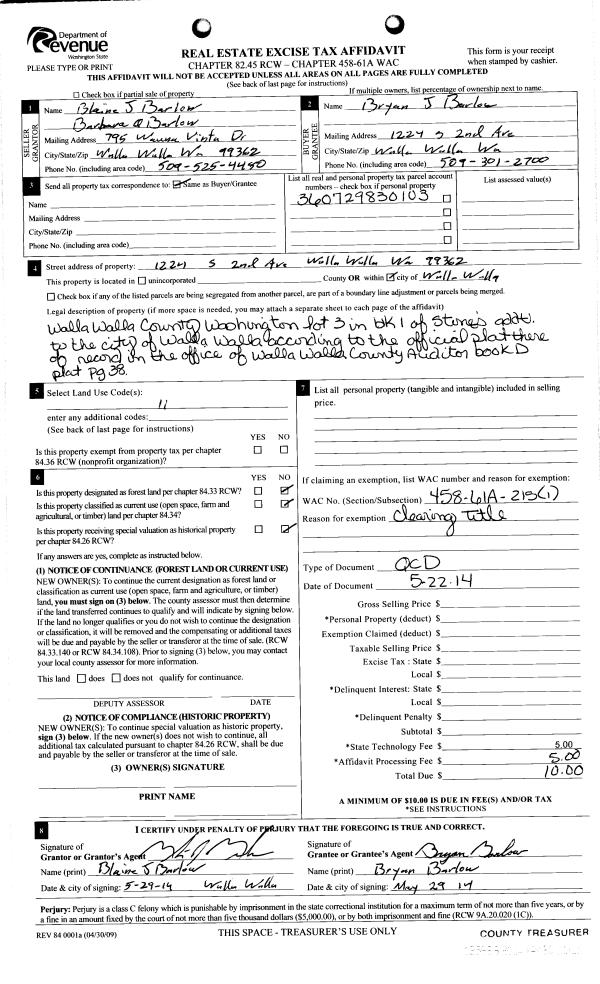 Department of
Revenue
Washington State
PLEASE TYPE OR PRINT
REAL ESTATE EXCISE TAX AFFIDAVIT
CHAPTER 82.45 RCW – CHAPTER 458-61A WAC
This form is your receipt
when stamped by cashier.
THIS AFFIDAVIT WILL NOT BE ACCEPTED UNLESS ALL AREAS ON ALL PAGES ARE FULLY COMPLETED
(See back of last page for instructions)
☐ Check box if partial sale of property
If multiple owners, list percentage of ownership next to name.
1 Name Blaine J Barlow
Barbara A Barlow
SELLER GRANTOR
Mailing Address 795 Wauna Vista Dr
City/State/Zip Walla Walla Wa 99362
Phone No. (including area code) 509-525-4480
2 Name Bryan J Barlow
BUYER GRANTEE
Mailing Address 1224 S 2nd Ave
City/State/Zip Walla Walla Wa
Phone No. (including area code) 509-301-2700
3 Send all property tax correspondence to: ☑ Same as Buyer/Grantee
Name
Mailing Address
City/State/Zip
Phone No. (including area code)
List all real and personal property tax parcel account
numbers – check box if personal property
360729830103 ☐
☐
☐
☐
List assessed value(s)
4 Street address of property: 1224 S 2nd Ave Walla Walla Wa 99362
This property is located in ☐ unincorporated County OR within ☑ city of Walla Walla
☐ Check box if any of the listed parcels are being segregated from another parcel, are part of a boundary line adjustment or parcels being merged.
Legal description of property (if more space is needed, you may attach a separate sheet to each page of the affidavit)
Walla Walla County Washington lot 3 in bk 1 of Stone's addt.
to the city of Walla Walla according to the official plat there
of record in the office of Walla Walla County Auditor book D
plat pg 38.
5 Select Land Use Code(s):
11
enter any additional codes:
(See back of last page for instructions)
YES NO
Is this property exempt from property tax per chapter
84.36 RCW (nonprofit organization)? ☐ ☐
6 YES NO
Is this property designated as forest land per chapter 84.33 RCW? ☐ ☑
Is this property classified as current use (open space, farm and
agricultural, or timber) land per chapter 84.34? ☐ ☑
Is this property receiving special valuation as historical property
per chapter 84.26 RCW? ☐ ☑
If any answers are yes, complete as instructed below.
(1) NOTICE OF CONTINUANCE (FOREST LAND OR CURRENT USE)
NEW OWNER(S): To continue the current designation as forest land or
classification as current use (open space, farm and agriculture, or timber)
land, you must sign on (3) below. The county assessor must then determine
if the land transferred continues to qualify and will indicate by signing below.
If the land no longer qualifies or you do not wish to continue the designation
or classification, it will be removed and the compensating or additional taxes
will be due and payable by the seller or transferor at the time of sale. (RCW
84.33.140 or RCW 84.34.108). Prior to signing (3) below, you may contact
your local county assessor for more information.
This land ☐ does ☐ does not qualify for continuance.
DEPUTY ASSESSOR DATE
(2) NOTICE OF COMPLIANCE (HISTORIC PROPERTY)
NEW OWNER(S): To continue special valuation as historic property,
sign (3) below. If the new owner(s) does not wish to continue, all
additional tax calculated pursuant to chapter 84.26 RCW, shall be due
and payable by the seller or transferor at the time of sale.
(3) OWNER(S) SIGNATURE
PRINT NAME
7 List all personal property (tangible and intangible) included in selling
price.
If claiming an exemption, list WAC number and reason for exemption:
WAC No. (Section/Subsection) 458-61A-215(1)
Reason for exemption Clearing title
Type of Document QCD
Date of Document 5-22-14
Gross Selling Price $
*Personal Property (deduct) $
Exemption Claimed (deduct) $
Taxable Selling Price $
Excise Tax : State $
Local $
*Delinquent Interest: State $
Local $
*Delinquent Penalty $
Subtotal $
*State Technology Fee $ 5.00
*Affidavit Processing Fee $ 5.00
Total Due $ 10.00
A MINIMUM OF $10.00 IS DUE IN FEE(S) AND/OR TAX
*SEE INSTRUCTIONS
8 I CERTIFY UNDER PENALTY OF PERJURY THAT THE FOREGOING IS TRUE AND CORRECT.
Signature of
Grantor or Grantor's Agent
Name (print) Blaine J Barlow
Date & city of signing: 5-29-14 Walla Walla
Signature of
Grantee or Grantee's Agent Bryan Barlow
Name (print) Bryan Barlow
Date & city of signing: May 29 14
Perjury: Perjury is a class C felony which is punishable by imprisonment in the state correctional institution for a maximum term of not more than five years, or by
a fine in an amount fixed by the court of not more than five thousand dollars ($5,000.00), or by both imprisonment and fine (RCW 9A.20.020 (1C)).
REV 84 0001a (04/30/09)
THIS SPACE - TREASURER'S USE ONLY
COUNTY TREASURER